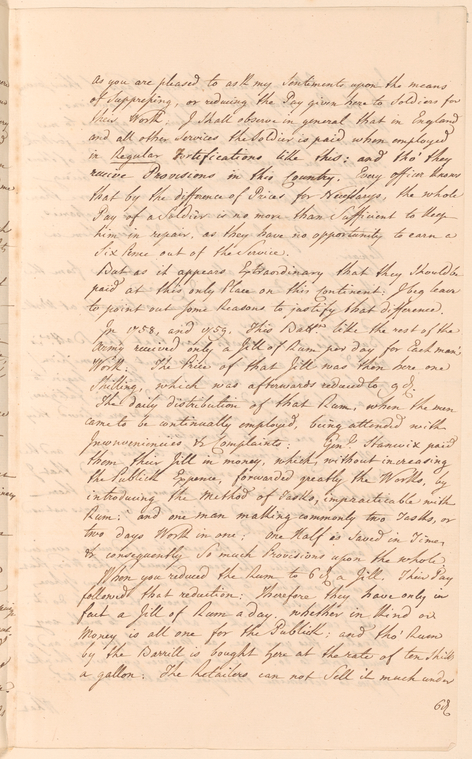 as you are pleased to ask my Sentiments upon the means
of Suppressing, or reducing the Pay given here to Soldiers for
their Work: I Shall observe in general that in England
and all other Services the Soldier is paid when employed
in Regular Fortifications like this: and tho' they
receive Provisions in this Country. Every officer knows
that by the difference of Prices for Necessarys, the whole
Pay of a Soldier is no more than Sufficient to keep
him in repair, as they have no opportunity to earn a
Six Pence out of the Service.
But as it appears Extraordinary that they Should be
paid at this only Place on this Continent; I beg leave
to point out some Reasons to justify that difference.
In 1758, and 1759. This Batt.n like the rest of the
Army received only a Jill of Rum per day for Each man's
Work: The Price of that Jill was then here one
Shilling, which was afterwards reduced to 9d.
The daily distribution of that Rum, when the men
came to be continually employed, being attended with
Inconveniences & Complaints: Gen.l Stanwix paid
them their Jill in money, which, without increasing
the Publick Expence, forwarded greatly the Works, by
introducing the Method of Tasks, impracticable with
Rum: and one man making commonly two Tasks, or
two days Work in one: One Half is Saved in Time,
& consequently So much Provisions upon the whole
When you reduced the Rum to 6d a Jill. Their Pay
followed that reduction: therefore they have only in
fact a Jill of Rum a day. whether in Kind or
Money is all one for the Publick: and tho' Rum
by the Barrill is bought here at the rate of ten Shill.s
a gallon: The Retailers can not Sell it much under
6d